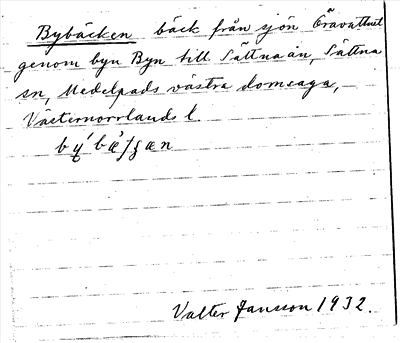 Bybäcken bäck från sjön Öravattnet
genom byn Byn till Sättnaån, Sättna
sn, Medelpads västra domsaga,
Västernorrlands l.
Valter Jansson 1932.